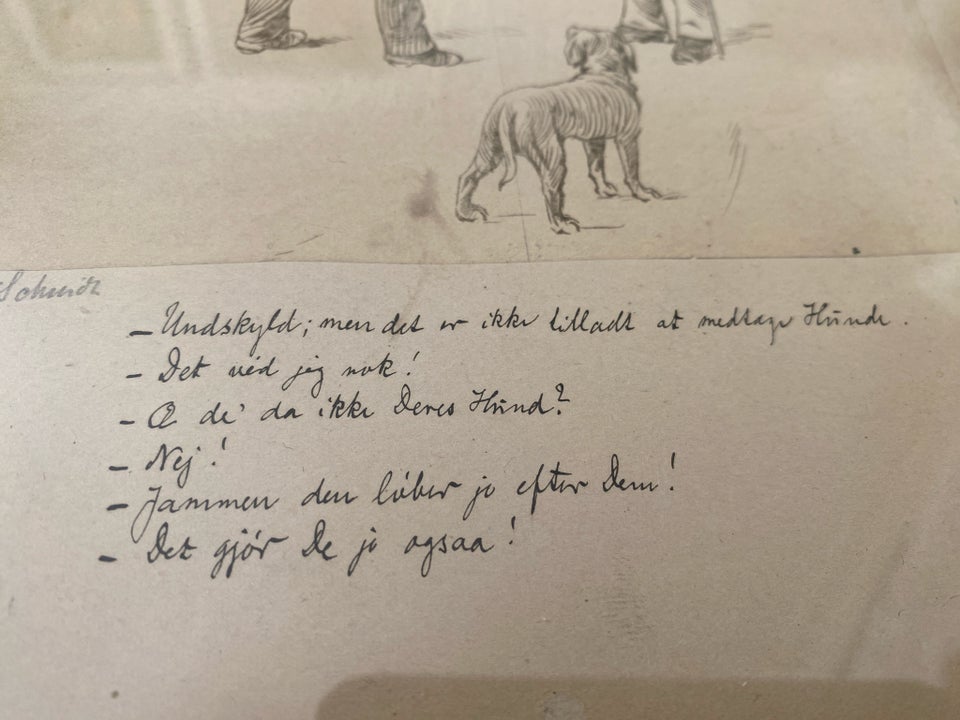 Schmidt
– Undskyld; men det er ikke tilladt at medtage Hunde.
– Det véd jeg nok!
– Æ de' da ikke Deres Hund?
– Nej!
– Jammen den løber jo efter Dem!
– Det gjør De jo ogsaa!